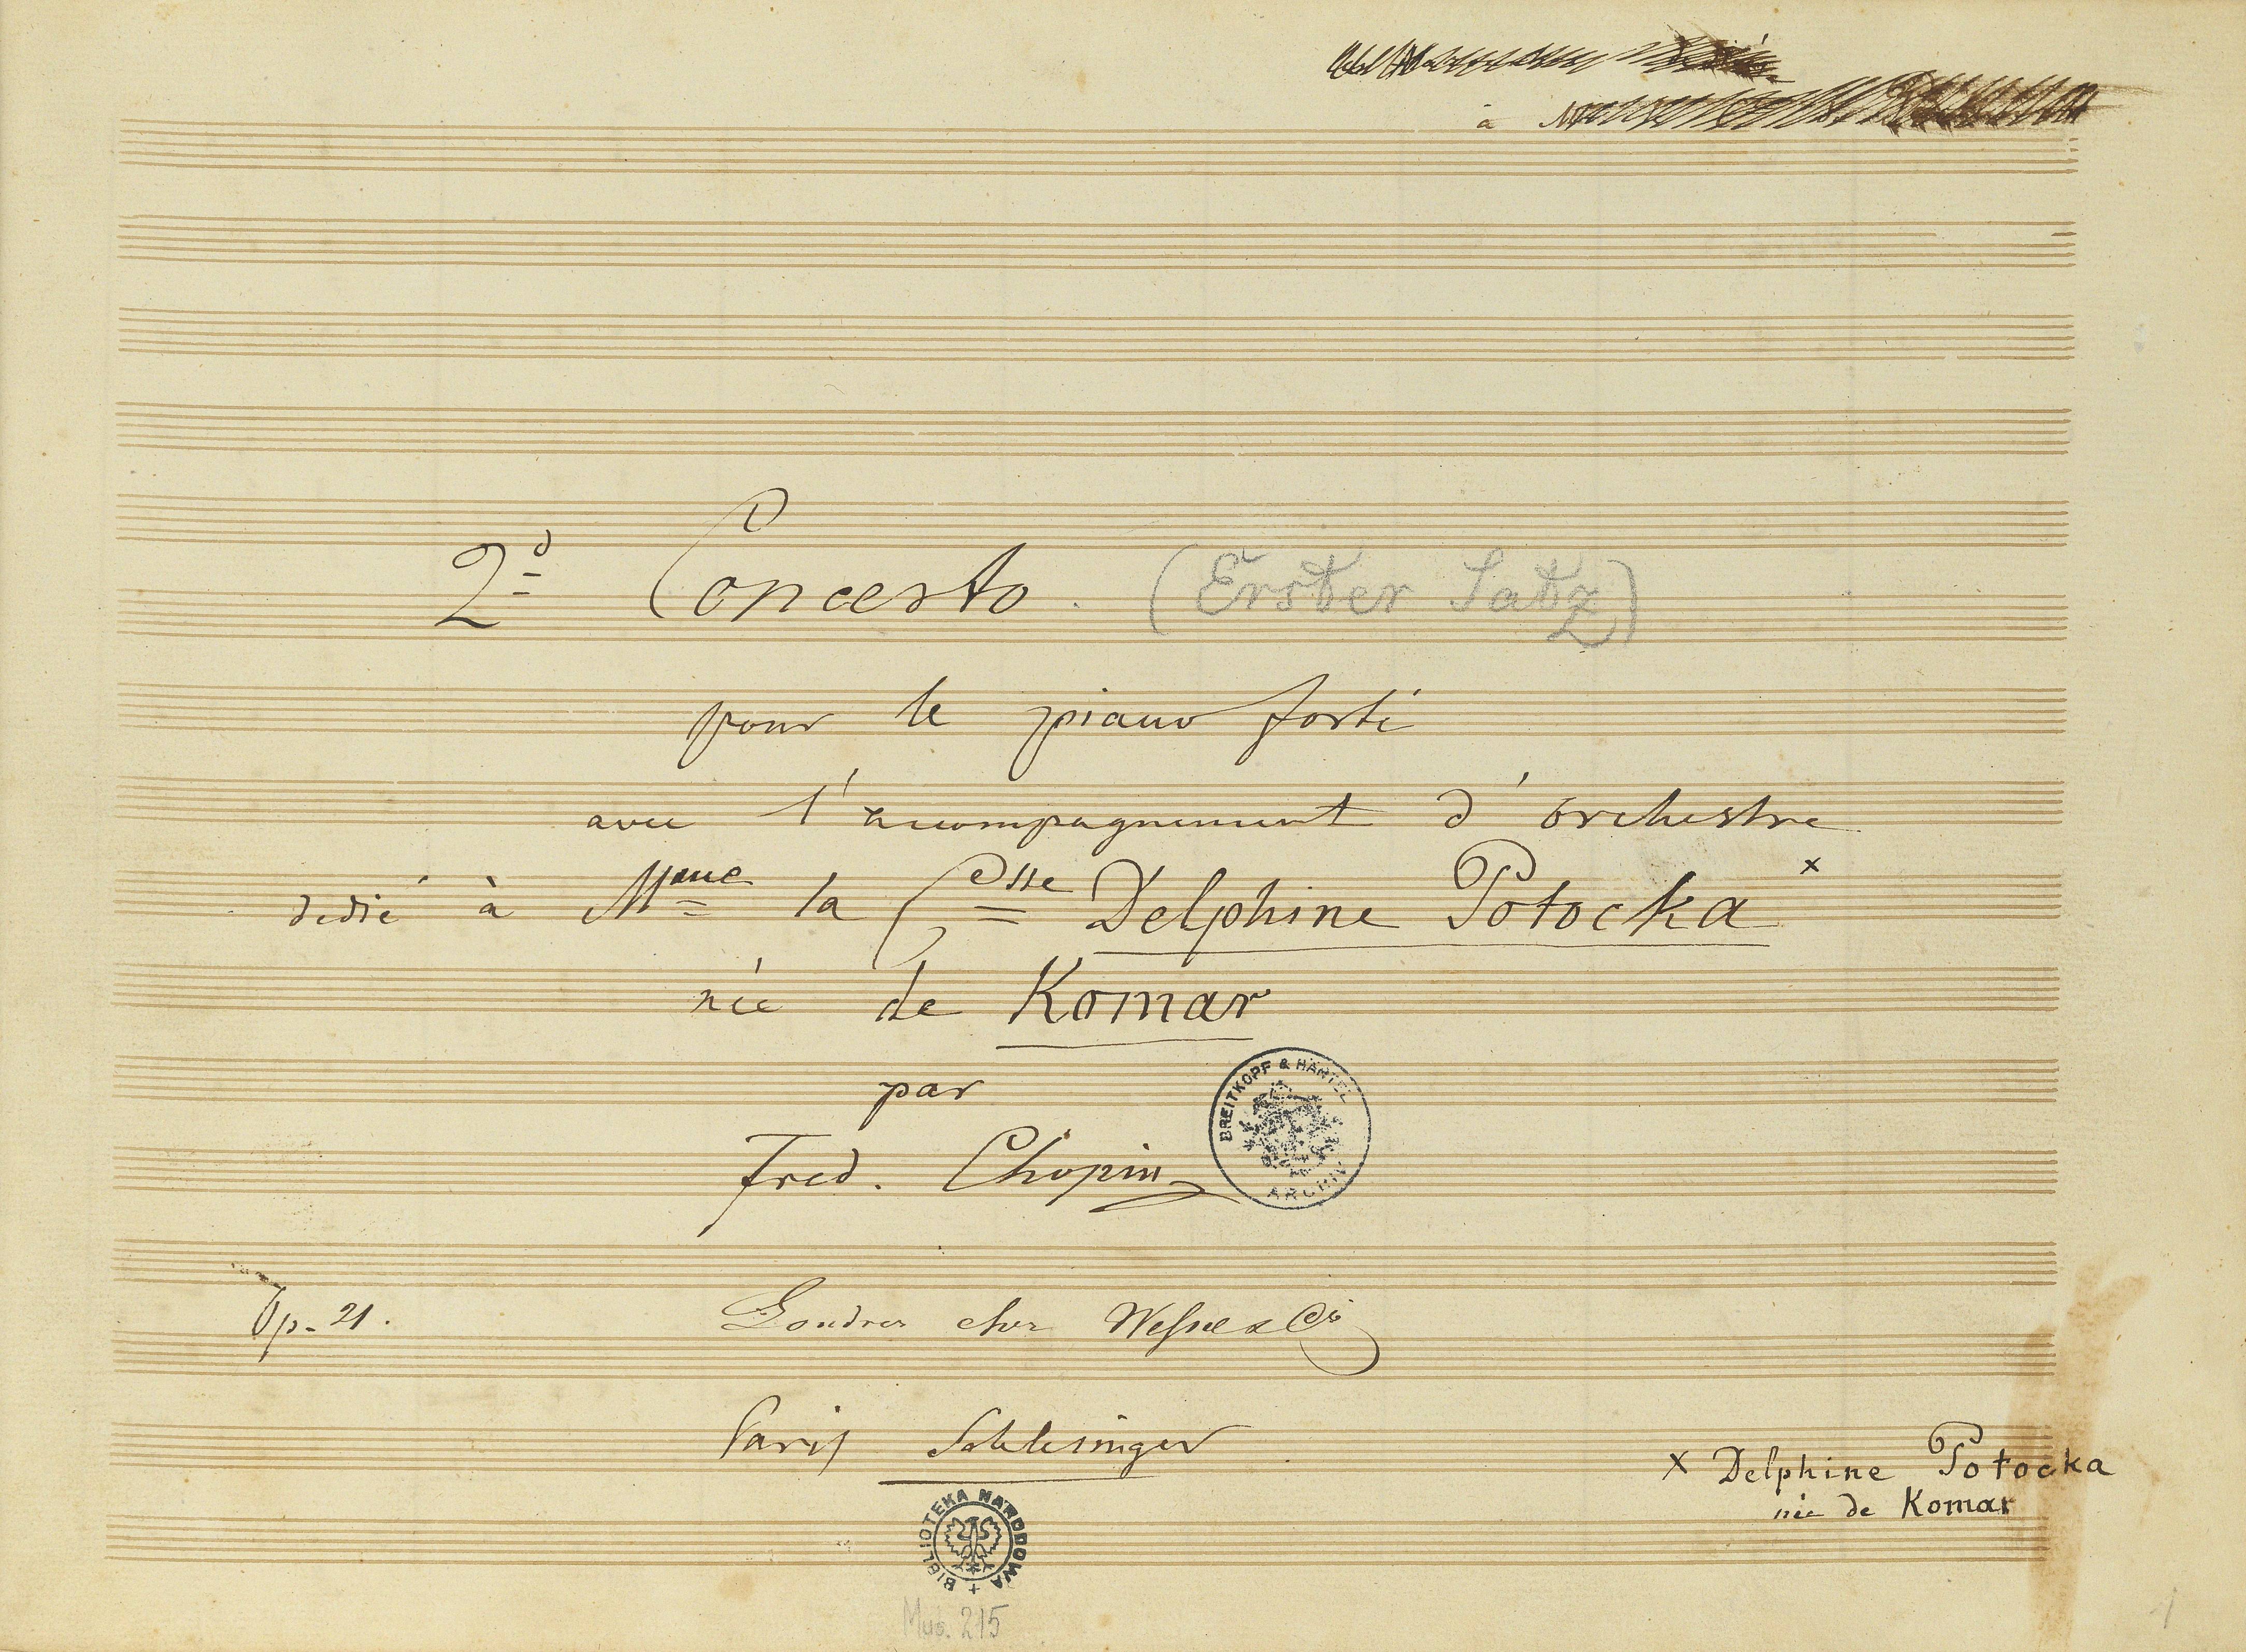 à
2d Concerto. (Erster Satz)
pour le piano forte
avec l'accompagnement d'orchestre
dedié à Mme la Csse Delphine Potocka x
née de Komar
par
Fred. Chopin
BREITKOPF & HÄRTEL ARCHIV
Op. 21.
Londres chez Wessel & Co
Paris Schlesinger
x Delphine Potocka
née de Komar
BIBLIOTEKA NARODOWA +
Mus. 215
1